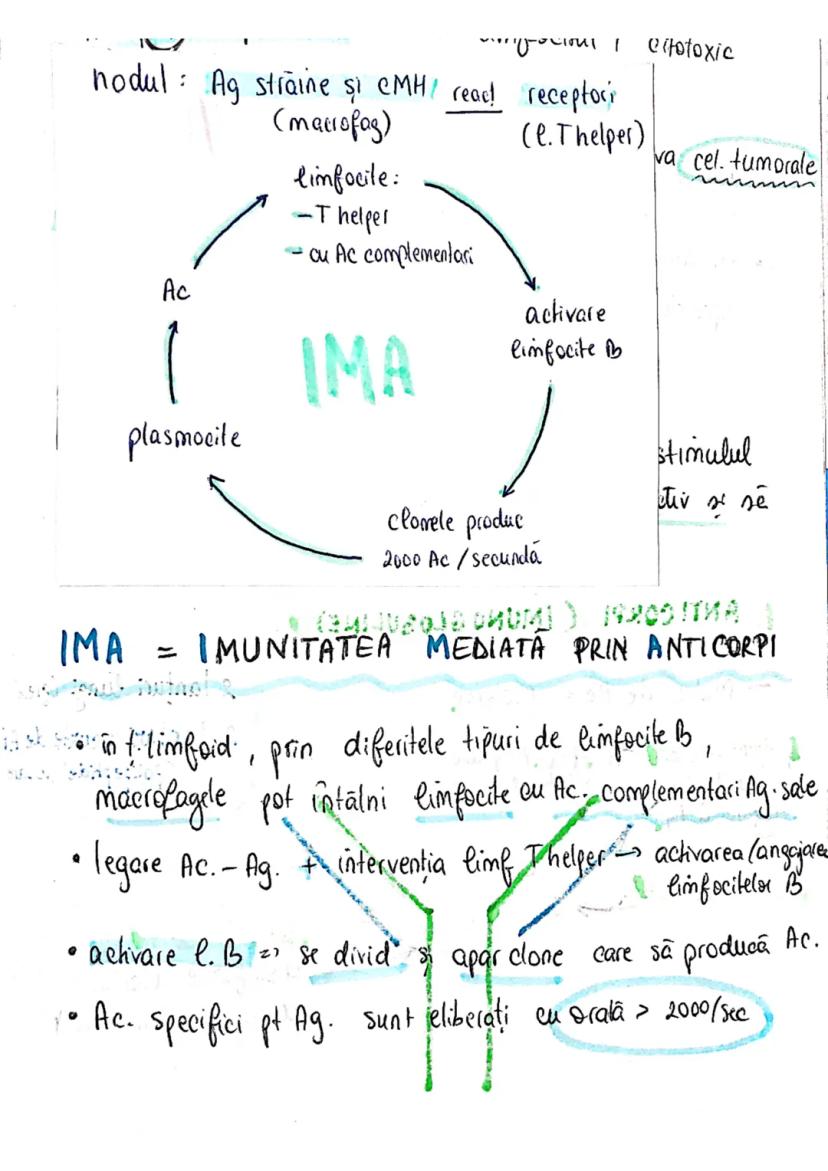 citotoxic
nodul: Ag străine și CMH react receptori
(macrofag) (l. T helper)
va cel. tumorale
limfocite:
- T helper
- cu Ac complementari
Ac
activare
limfocite B
IMA
plasmocite
stimulul
și să
clonele produc
2000 Ac / secundă
ANTICORPI (IMUNOGLOBULINE)
IMA = IMUNITATEA MEDIATĂ PRIN ANTICORPI
• în ț. limfoid, prin diferitele tipuri de limfocite B,
macrofagele pot întâlni limfocite cu Ac. complementari Ag. sale
• legare Ac. - Ag. + intervenția limf T helper → activarea/angajarea
limfocitelor B
• activare l. B => se divid și apar clone care să producă Ac.
• Ac. specifici pt Ag. sunt eliberați cu o rată > 2000/sec